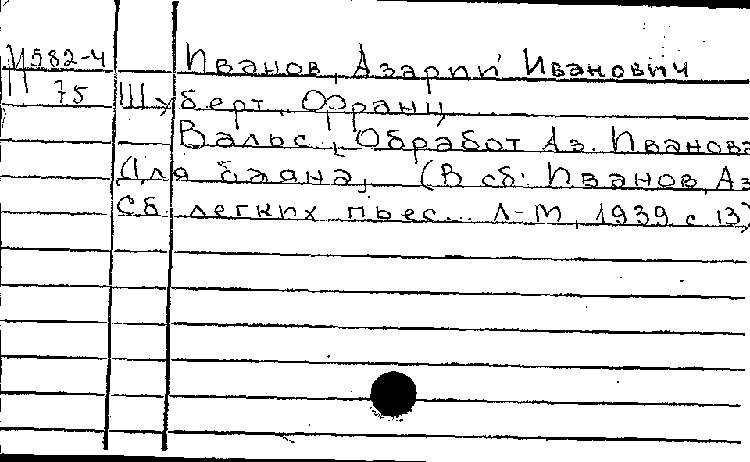 М582-4 Иванов, Азарий Иванович
75 Шуберт, Франц
Вальс, Обработ Аз. Иванова
Для баяна, (В сб: Иванов, Аз
Сб. легких пьес... Л-М, 1939 с 13)